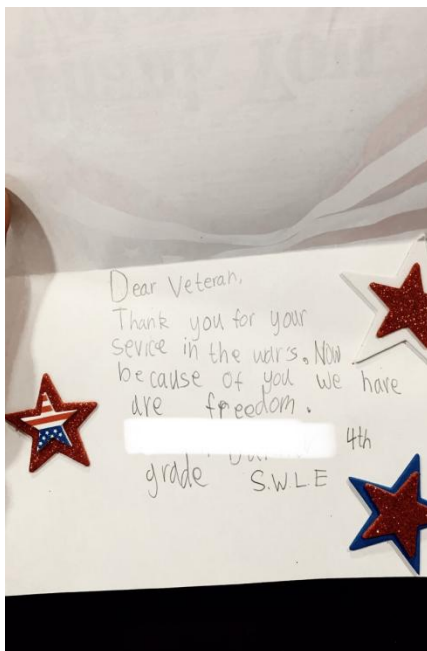 Dear Veteran,
Thank you for your
sevice in the wars. Now
because of you we have
are freedom.
4th
grade S.W.L.E